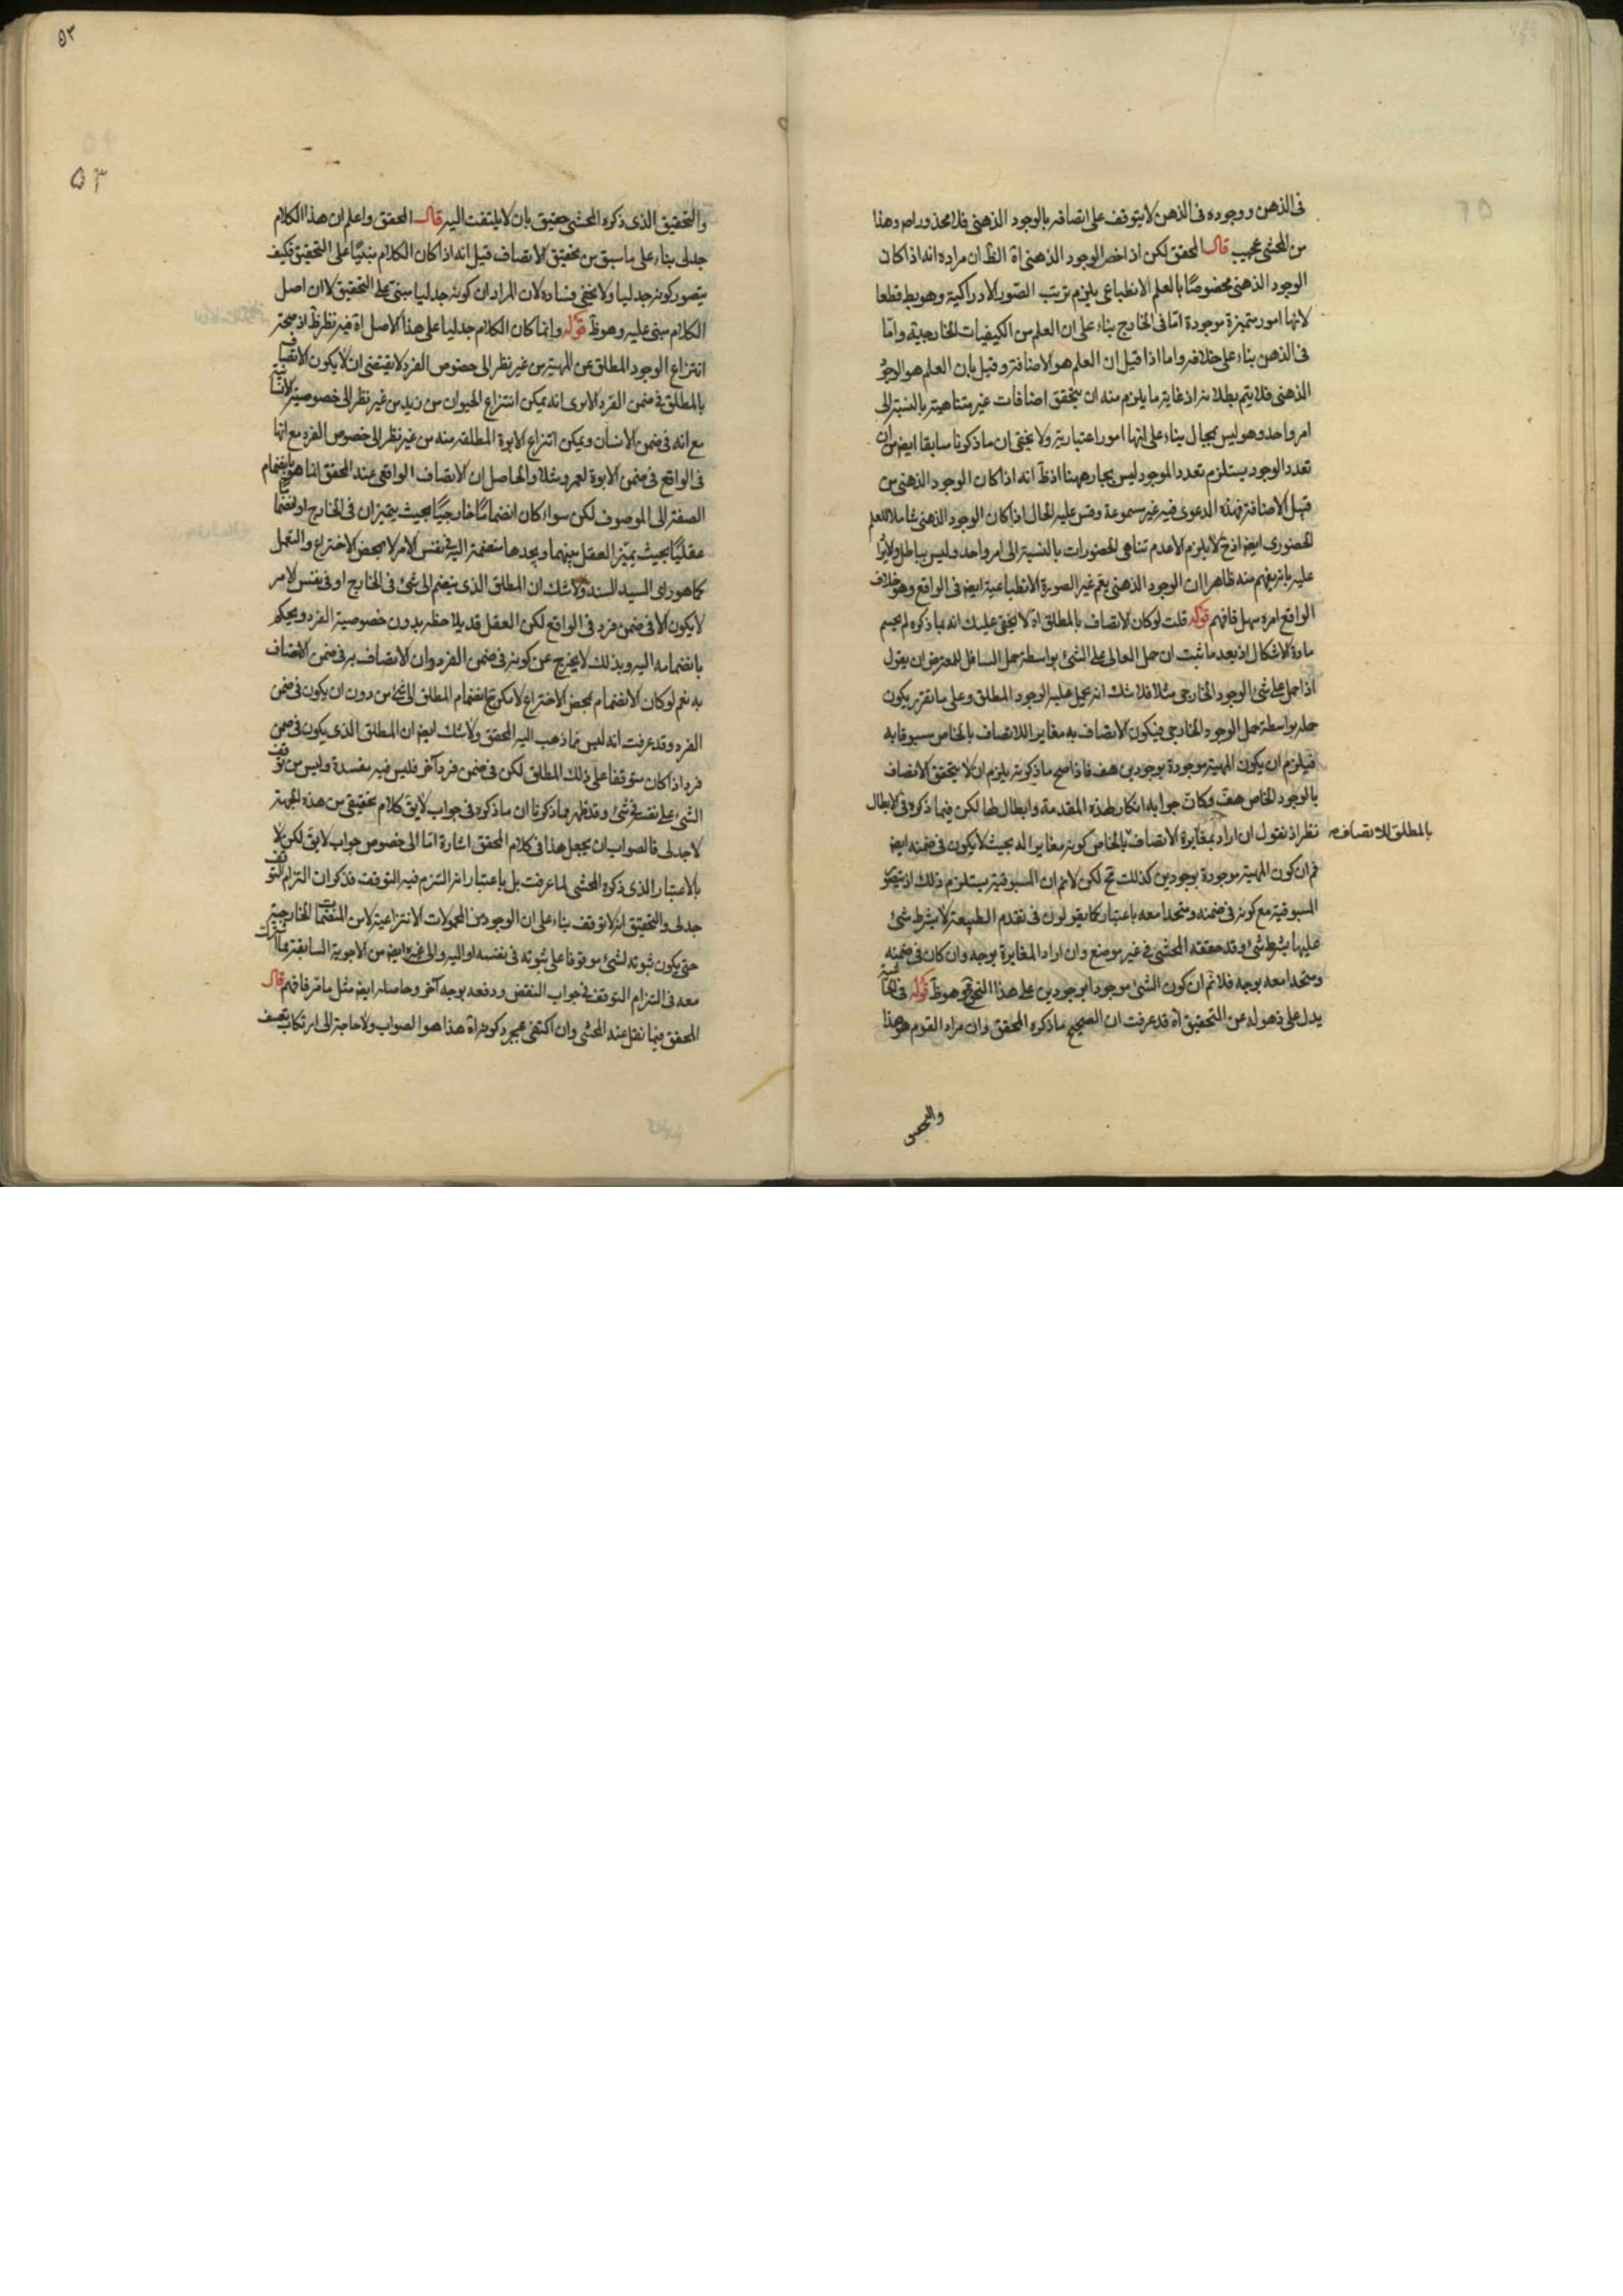 فى الذهن ووجوده فى الذهن لا يتوقف على اتصافه بالوجود الذهنى فلا محذور اصلا وهذا
من المحشى عجيب قال المحقق لكن اذا خص الوجود الذهنى اه الظ ان مراده انه اذا كان
الوجود الذهنى مخصوصًا بالعلم الانطباعى يلزم ترتب الصّور الادراكية وهو بط قطعا
لانها امور متميزة موجودة امّا فى الخارج بناء على ان العلم من الكيفيات الخارجية وامّا
فى الذهن بناء على خلافه واما اذا قيل ان العلم هو الاضافة وقيل بان العلم هو الوجود
الذهنى فلا يتم بطلانه اذ غاية ما يلزم منه ان يتحقق اضافات غير متناهية بالنسبة الى
امر واحد وهو ليس بمحال بناء على انها امور اعتبارية ولا يخفى ان ما ذكرنا سابقا ايض من ان
تعدد الوجود يستلزم تعدد الموجود ليس بجار ههنا اذ ظ انه اذا كان الوجود الذهنى من
قبيل الاضافة فهذه الدعوى فيه غير مسموعة وقس عليه الحال اذا كان الوجود الذهنى شاملا للعلم
الحضورى ايض اذ ح لا يلزم الا عدم تناهى الحضورات بالنسبة الى امر واحد وليس بباطل
عليه بانه يفهم منه ظاهرا ان الوجود الذهنى يعم غير الصورة الانطباعية ايض فى الواقع وهو خلاف
الواقع امره سهل فافهم قوله قلت لو كان الاتصاف بالمطلق اه لا يخفى عليك انه بما ذكره لم يحسم
مادة الاشكال اذ بعد ما ثبت ان حمل العالى على الشئ بواسطة حمل السافل للمعترض ان يقول
اذا حمل على شئ الوجود الخارجى مثلا فلا شك انه يحمل عليه الوجود المطلق وعلى ما تقرر يكون
حمله بواسطة حمل الوجود الخارجى فيكون الاتصاف به مغايرا للاتصاف بالخاص مسبوقا به
فيلزم ان يكون المهية موجودة بوجودين هف فاذا صح ما ذكرته يلزم ان لا يتحقق الاتصاف
بالوجود الخاص هف وكان جوابه انكار لهذه المقدمة وابطال لها لكن فيما ذكره فى الابطال
نظر اذ نقول ان اراد بمغايرة الاتصاف بالخاص كونه مغايرا له بحيث لا يكون فى ضمنه ايض
بالمطلق للاتصاف
فم ان كون المهية موجودة بوجودين كذلك مح لكن لا نم ان المسبوقية يستلزم ذلك اذ يتصور
المسبوقية مع كونه فى ضمنه ومتحدا معه باعتبار كما يقولون فى تقدم الطبيعة لا بشرط شئ
عليها بشرط شئ وقد حققه المحشى فى غير موضع وان اراد المغايرة بوجه وان كان فى ضمنه
ومتحدا معه بوجه فلا نم ان كون الشئ موجودا بوجودين على هذا النحو مح وهو ظ قوله فى الحاشية
يدل على ذهوله عن التحقيق اه قد عرفت ان الصحيح ما ذكره المحقق وان مراد القوم هو هذا
والتحقيق
٥٣
٥٣
والتحقيق الذى ذكره المحشى حقيق بان لا يلتفت اليه قال المحقق واعلم ان هذا الكلام
جدلى بناء على ما سبق من تحقيق الاتصاف قيل انه اذا كان الكلام مبنيًا على التحقيق فكيف
يتصور كونه جدليا ولا يخفى فساده لان المراد ان كونه جدليا مبنى على التحقيق لا ان اصل
الكلام مبنى عليه وهو ظ قوله وانما كان الكلام جدليا على هذا الاصل اه فيه نظر ظ اذ صحة
انتزاع الوجود المطلق عن المهية من غير نظر الى خصوص الفرد لا يقتضى ان لا يكون الاتصاف
بالمطلق فى ضمن الفرد الا يرى انه يمكن انتزاع الحيوان من زيد من غير نظر الى خصوصية الانسانية
مع انه فى ضمن الانسان ويمكن انتزاع الابوة المطلقة منه من غير نظر الى خصوص الفرد مع انها
فى الواقع فى ضمن الابوة لعمرو مثلا والحاصل ان الاتصاف الواقعى عند المحقق انما هو بانضمام
الصفة الى الموصوف لكن سواء كان انضمامًا خارجيًا بحيث يتميزان فى الخارج او انضماما
عقليًا بحيث يميّز العقل بينهما ويجدها منضمة اليه فى نفس الامر لا بمحض الاختراع والتعمل
كما هو راى السيد السند ولا شك ان المطلق الذى ينضم الى شئ فى الخارج او فى نفس الامر
لا يكون الا فى ضمن فرد فى الواقع لكن العقل قد يلاحظه بدون خصوصية الفرد ويحكم
بانضمامه اليه وبذلك لا يخرج عن كونه فى ضمن الفرد وان الاتصاف به فى ضمن الاتصاف
به نعم لو كان الانضمام بمحض الاختراع لامكن ح انضمام المطلق الى شئ من دون ان يكون فى ضمن
الفرد وقد عرفت انه ليس مما ذهب اليه المحقق ولا شك ايض ان المطلق الذى يكون فى ضمن
فرد اذا كان متوقفا على ذلك المطلق لكن فى ضمن فرد آخر فليس فيه مفسدة وليس من توقف
الشئ على نفسه فى شئ وقد ظهر بما ذكرنا ان ما ذكره فى جواب لا يق كلام تحقيقى من هذه الجهة
لا جدلى فالصواب ان يجعل هذا فى كلام المحقق اشارة امّا الى خصوص جواب لا يق لكن لا
بالاعتبار الذى ذكره المحشى لما عرفت بل باعتبار انه التزم فيه التوقف فذكر ان التزام التوقف
جدلى والتحقيق انه لا توقف بناء على ان الوجود من المحمولات الانتزاعية لا من المنضمات الخارجية
حتى يكون ثبوته لشئ موقوفا على ثبوته فى نفسه او اليه والى غيره ايض من الاجوبة السابقة مما اشترك
معه فى التزام التوقف فى جواب النقض ودفعه بوجه آخر وحاصله ايض مثل ما مر فافهم قال
المحقق فيما نقل عنه المحشى وان اكتفى بمجرد كونه اه هذا هو الصواب ولا حاجة الى ارتكاب تعسف